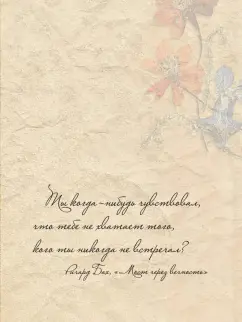 Ты когда-нибудь чувствовал,
что тебе не хватает того,
кого ты никогда не встречал?
Ричард Бах, «Мост через вечность»